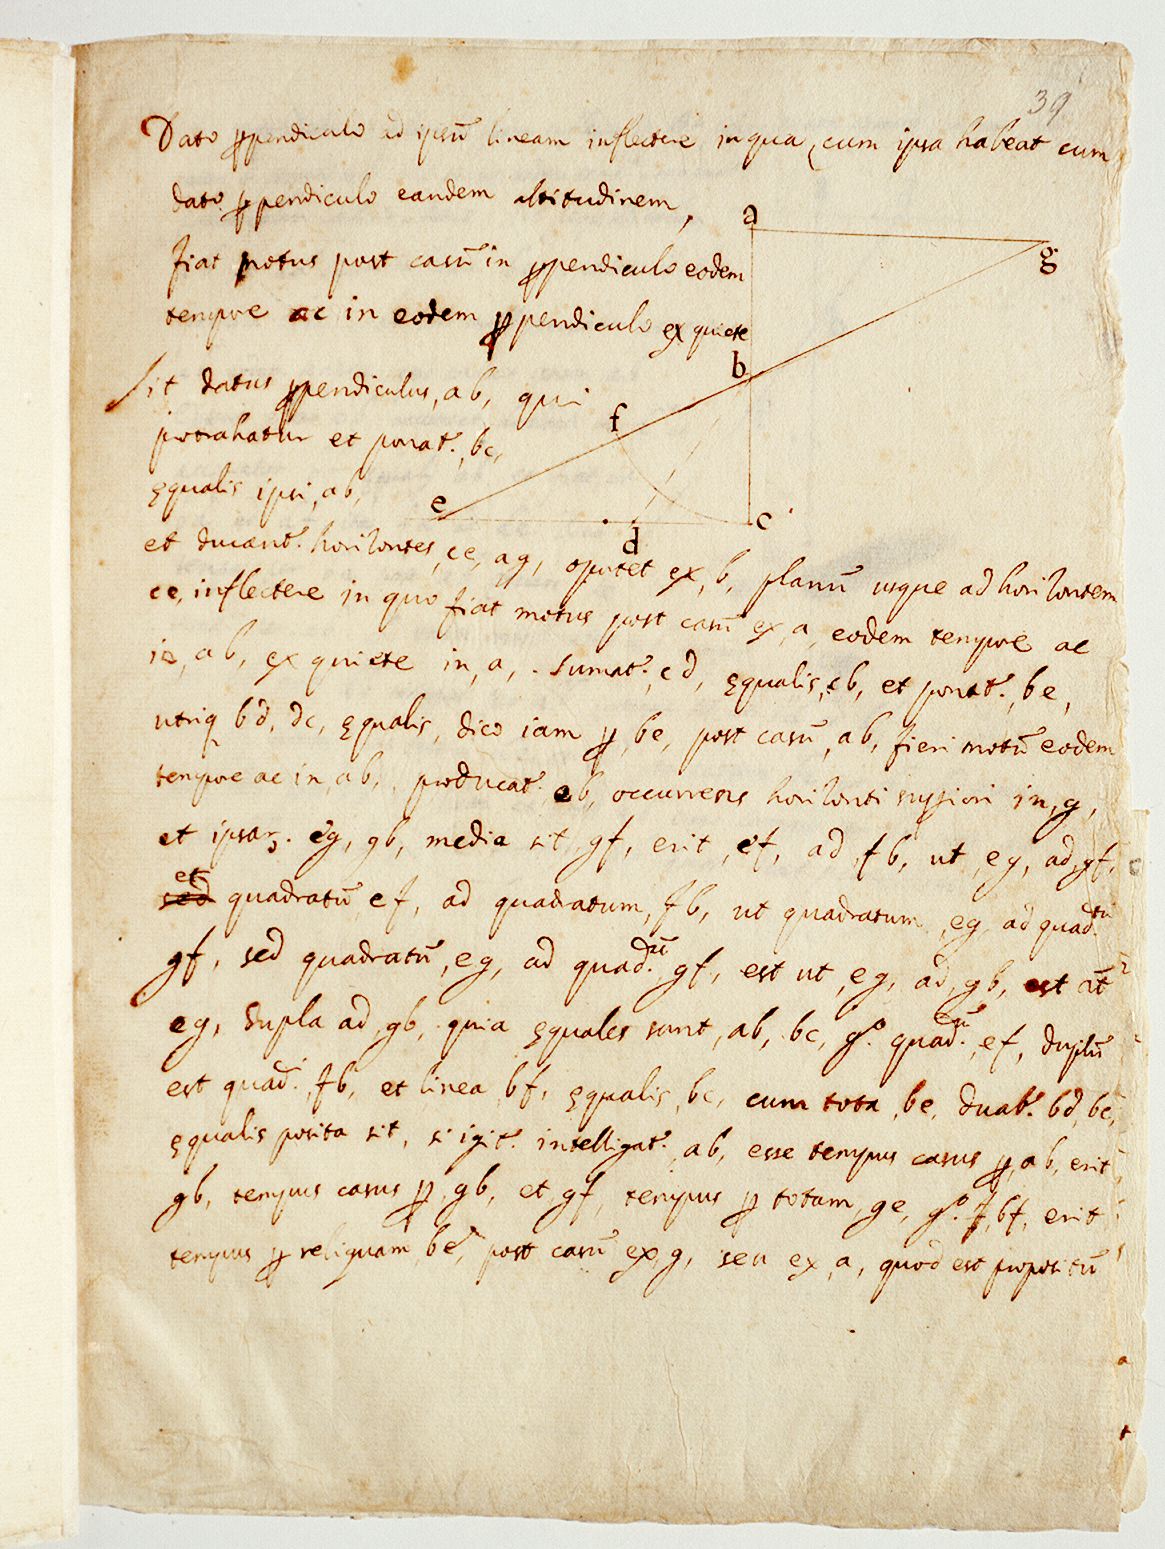 39
Dato ꝑpendiculo ad ipsū lineam inflectere in qua, cum ipsa habeat cum
dato ꝑpendiculo eandem altitudinem,
fiat motus post casū in ꝑpendiculo eodem
tempore ac in eodem ꝑpendiculo ex quiete
Sit datus ꝑpendiculus, ab, qui
protrahatur et ponat., bc,
ęqualis ipsi, ab,
et ducant. horizontes, ce, ag, oportet ex, b, planū usque ad horizontem
ce, inflectere in quo fiat motus post casū ex, a, eodem tempore ac
in, ab, ex quiete in, a, . sumat., cd, ęqualis, cb, et ponat., be,
utriq bd, dc, ęqualis, dico iam ꝑ be, post casū, ab, fieri motū eodem
tempore ac in, ab, producat., eb, occurrens horizonti supiori in, g,
et ipsaꝝ. eg, gb, media sit gf, erit, ef, ad, fb, ut, eg, ad, gf,
et
sed quadratū ef, ad quadratum, fb, ut quadratum, eg ad quad.tū
gf, sed quadratū, eg, ad quad.ū gf, est ut, eg, ad, gb, est āt
eg, dupla ad, gb, quia ęquales sunt, ab, bc, gº. quad.ū, ef, duplū
est quad.i, fb, et linea, bf, ęqualis, bc, cum tota, be, duab. bd, bc,
ęqualis posita sit, si igit. intelligat. ab, esse tempus casus ꝑ, ab, erit
gb, tempus casus ꝑ, gb, et, gf, tempus ꝑ totam, ge, gº. bf, erit
tempus ꝑ reliquam, be, post casū ex, g, seu ex, a, quod est propositū
a
g
b
f
e
c
d